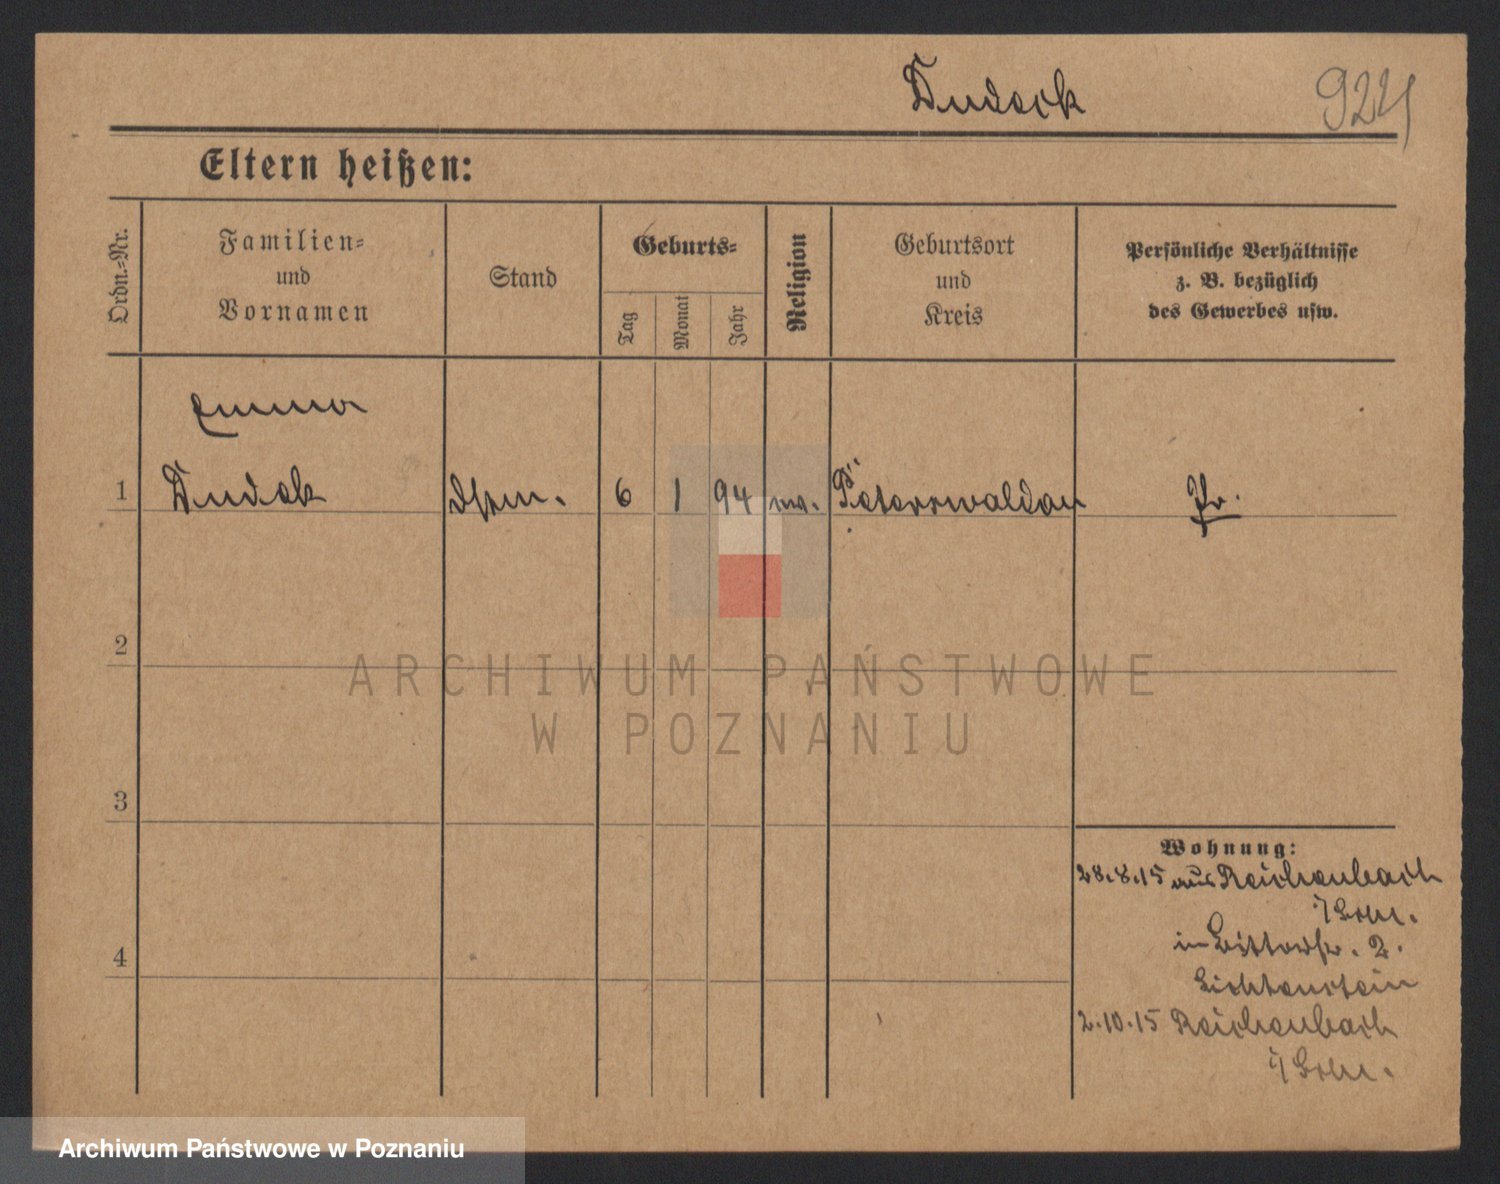 Dudeck
924
Eltern heißen:
Ordn.-Nr.
Familien-
und
Vornamen
Stand
Geburts-
Tag
Monat
Jahr
Religion
Geburtsort
und
Kreis
Persönliche Verhältnisse
z. B. bezüglich
des Gewerbes usw.
Emma
1 Dudek 6 1 94 Peterswaldau Pr.
2
3
4
Wohnung:
28.8.15 aus Reichenbach
i/Schl.
in Ritterstr. 2.
Lichtenstein
2.10.15 Reichenbach
i/Schl.
ARCHIWUM PAŃSTWOWE
W POZNANIU
Archiwum Państwowe w Poznaniu